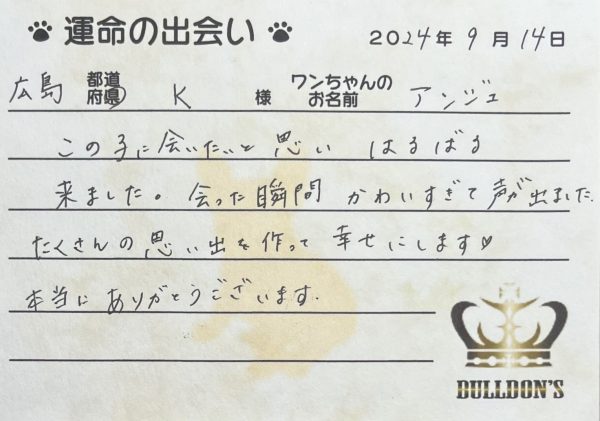 運命の出会い 2024年9月14日
広島 都道府県 K 様 ワンちゃんのお名前 アンジュ
この子に会いたいと思い はるばる
来ました。会った瞬間 かわいすぎて声が出ました
たくさんの思い出を作って 幸せにします♡
本当にありがとうございます.
BULLDON'S